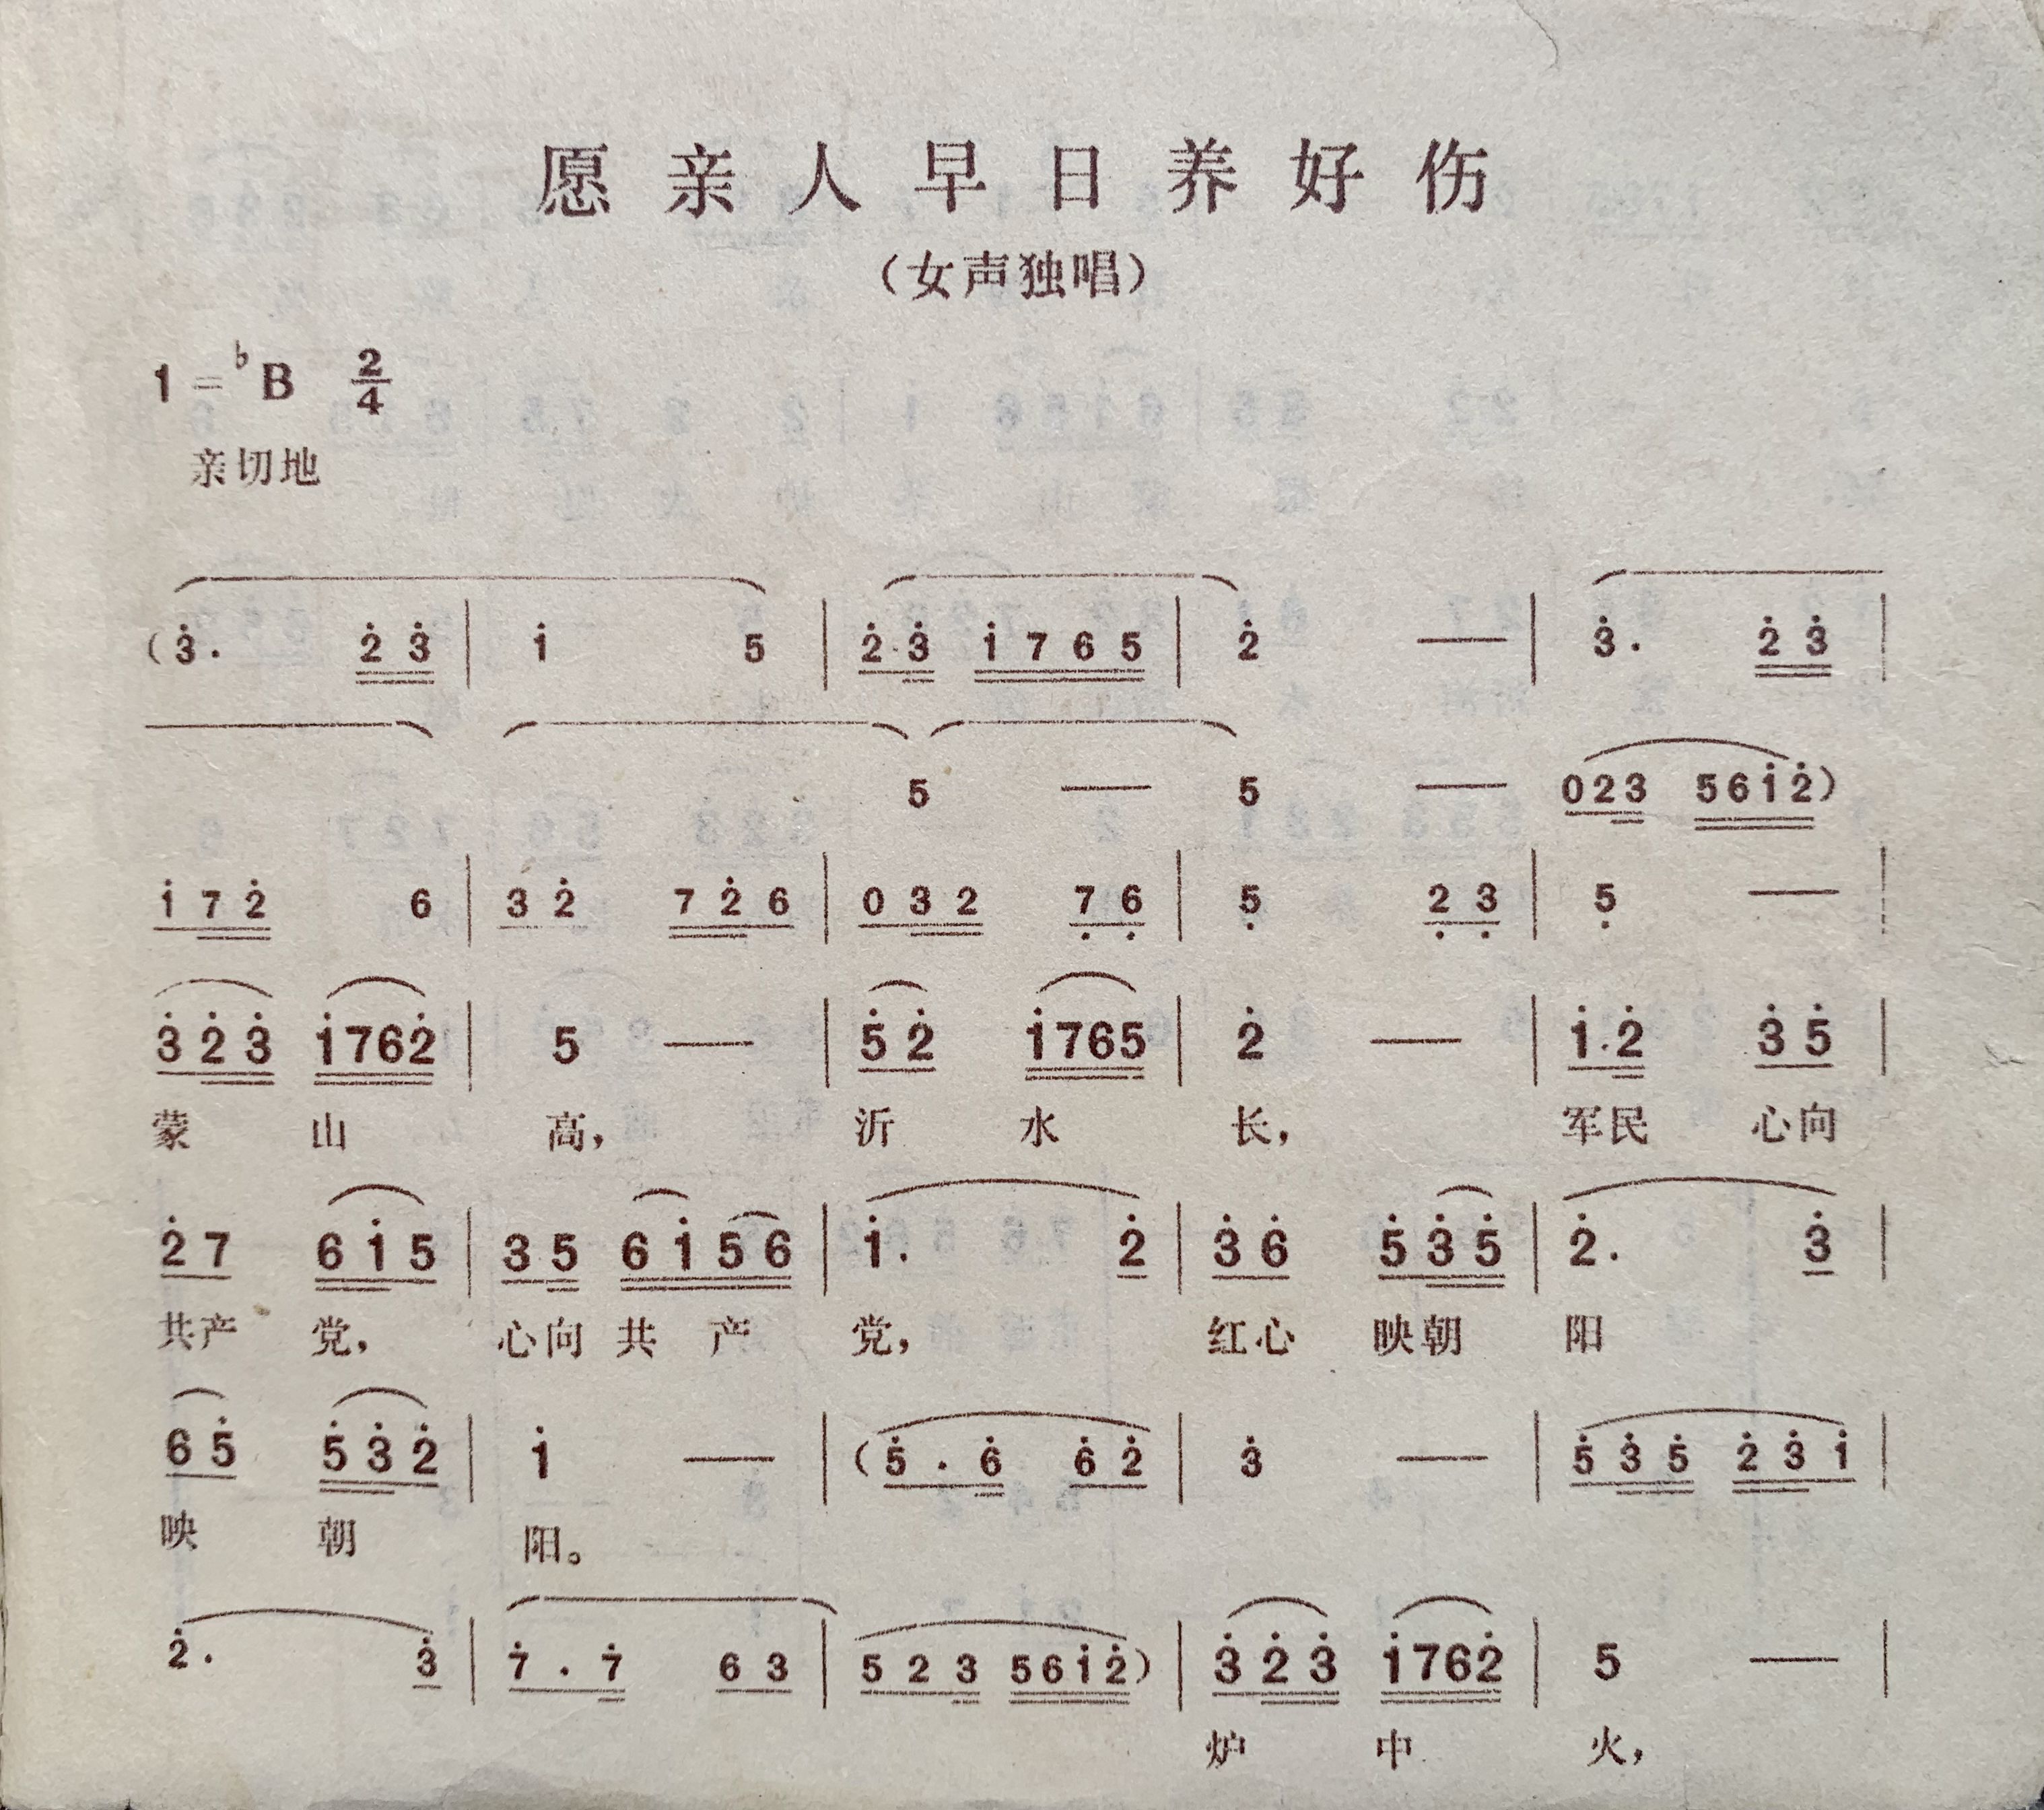 愿亲人早日养好伤
（女声独唱）
1=♭B 2/4
亲切地
(3̇. 2̇ 3̇ | 1̇ 5 | 2̇·3̇ 1̇ 7 6 5 | 2̇ — | 3̇. 2̇ 3̇ |
5 — 5 — 0 2 3 5 6 1̇ 2̇)
1̇ 7 2̇ 6 | 3 2̇ 7 2̇ 6 | 0 3 2 7̣ 6̣ | 5̣ 2̣ 3̣ | 5̣ — |
3̇ 2̇ 3̇ 1̇ 7 6 2̇ | 5 — | 5̇ 2̇ 1̇ 7 6 5 | 2̇ — | 1̇·2̇ 3̇ 5̇ |
蒙 山 高， 沂 水 长， 军民 心向
2̇ 7 6 1̇ 5 | 3 5 6 1̇ 5 6 | 1̇. 2̇ | 3̇ 6̇ 5̇ 3̇ 5̇ | 2̇. 3̇ |
共产 党， 心向 共 产 党， 红心 映朝 阳
6 5̇ 5̇ 3̇ 2̇ | 1̇ — | (5̇ . 6̇ 6̇ 2̇ | 3̇ — | 5̇ 3̇ 5̇ 2̇ 3̇ 1̇ |
映 朝 阳。
2̇. 3̇ | 7̇ . 7̇ 6 3 | 5 2 3 5 6 1̇ 2̇) | 3̇ 2̇ 3̇ 1̇ 7 6 2̇ | 5 — |
炉 中 火，